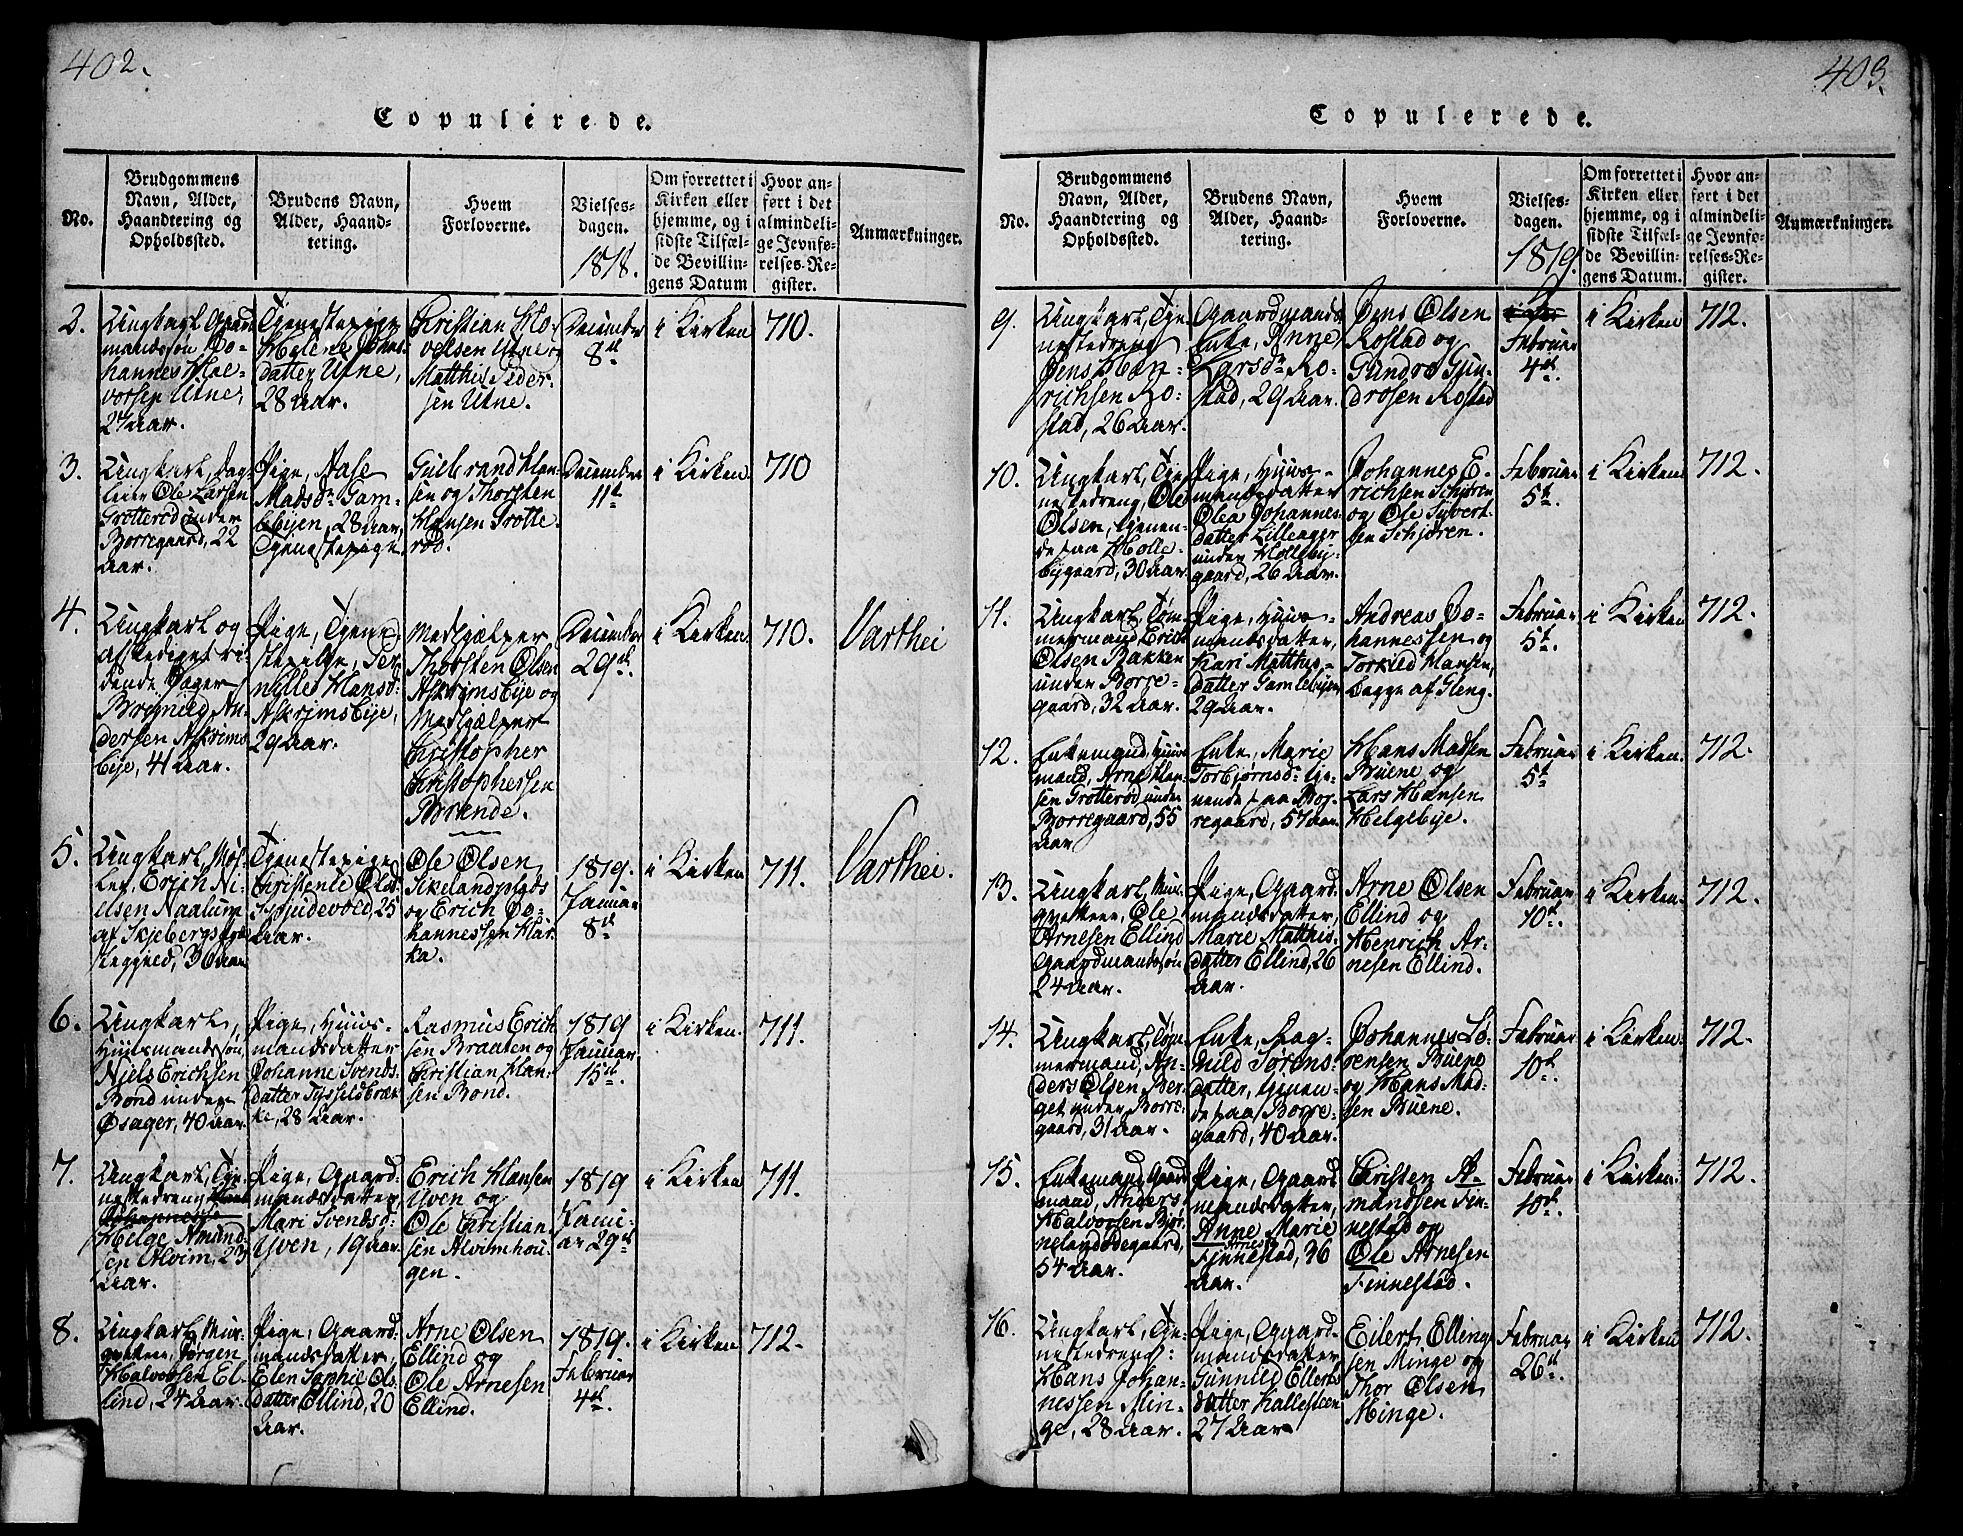 402.
Copulerede.
No.
Brudgommens
Navn, Alder,
Haandtering og
Opholdssted.
Brudens Navn,
Alder, Haand-
tering.
Hvem
Forloverne.
Vielses-
dagen.
1818.
Om forrettet i
Kirken eller
hjemme, og i
sidste Tilfæl-
de Bevillin-
gens Datum
Hvor an-
ført i det
almindeli-
ge Jevnfø-
relses-Re-
gister.
Anmærkninger.
2.
Ungkarl Gaard
mandssøn Jo-
hannes Hal-
vorsen Utne,
27 aar.
Tjenestepige
Helene Johns-
datter Utne,
28 aar.
Christian Hlo-
versen Utne og
Matthis Peder-
sen Utne.
December
8de
i Kirken
710.
3.
Ungkarl, dag-
leier Ole Larsen
Grøtterød under
Borregaard, 22
aar.
Pige, Aase
Madsdr Gam-
lebyen, 28 aar,
Tjenestepige
Gulbrand Han-
sen og Thorsten
Hansen Grøtte-
rød.
December
11te
i Kirken
710
4.
Ungkarl og
afskediget ri-
dende Jæger
Brynild An-
dersen Askrims-
bye, 41 aar.
Pige, Tjene-
stepige, Per-
nille Hansd:
Askrimsbye,
29 aar.
Medhjælper
Thorsten Olsen
Askrimsbye og
Medhjælper
Christopher
Christophersen
Børende.
December
29de.
i Kirken
710.
Varthei
5.
Ungkarl, Møl-
ler, Erich Ni-
elsen Naalum
af Skjebergs Præ-
stegjeld, 30 aar
Tjenestepige
Christense Olsd:
Skjudevold, 25
aar.
Ole Olsen
Sikelandplads
og Erich Jo-
hannessen Har-
ka.
1819.
Januar
8de
i Kirken
711.
Varthei.
6.
Ungkarl,
Huusmandssøn,
Niels Erichsen
Bond under
Øsager, 40 aar.
Pige, Huus-
mandsdatter
Johanne Svends-
datter Tysseldbræk-
ke, 28 Aar.
Rasmus Erich
sen Braaten og
Christian Han-
sen Bond.
1819
Januar
15de.
i Kirken.
711.
7.
Ungkarl, Tje-
nestedreng
Helge Amund-
sen Alvim, 23
Aar.
Pige, Gaard-
mandsdatter
Mari Svendsd:
Yven, 19 aar.
Erich Hansen
Yven og
Ole Christian-
sen Alvimhou-
gen.
1819
Janu-
ar 29de
i Kirken
711.
8.
Ungkarl, Mur-
gvetten, Jørgen
Halvorsen El-
lind, 24 Aar.
Pige, Gaard-
mandsdatter,
Elen Sophie Ols-
datter Ellind, 20
Aar.
Arne Olsen
Ellind og
Ole Arnesen
Ellind.
1819.
Februar
4de.
i Kirken
712.
403.
Copulerede.
No.
Brudgommens
Navn, Alder,
Haandtering og
Opholdssted.
Brudens Navn,
Alder, Haand-
tering.
Hvem
Forloverne.
Vielses-
dagen.
1819.
Om forrettet i
Kirken eller
hjemme, og i
sidste Tilfæl-
de Bevillin-
gens Datum.
Hvor an-
ført i det
almindeli-
ge Jevnfø-
relses-Re-
gister.
Anmærkninger.
9.
Ungkarl, Tje-
nestedreng
Jens Hen-
richsen Ro-
stad, 26 Aar.
Gaardmands
Enke, Anne
Larsdr Ro-
stad, 29 Aar.
Jens Olsen
Rostad og
Gundro Gun-
drosen Rostad
Februar
4de.
i Kirken
712.
10.
Ungkarl, Tje-
nestedreng, Ole
Olsen, tjenen-
de paa Holle-
bygaard, 30 aar.
Pige, Huus-
mandsdatter
Olea Johannes-
datter Lillenger
under Holleby-
gaard, 26 Aar.
Johannes E-
richsen Schjøren
og Ole Syvert-
sen Schjøren.
Februar
5te.
i Kirken
712.
11.
Ungkarl, Tøm-
mermand Erich
Olsen Bakken
under Borre-
gaard, 32 aar.
Pige, Huus-
mandsdatter,
Kari Matthis-
datter Gamlebyen
29 aar.
Andreas Jo-
hannessen og
Torkild Hansen,
begge af Gleng.
Februar
5te.
i Kirken
712.
12.
Enkemand, Huus-
mand, Arne Han-
sen Grøtterød under
Borregaard, 55
Aar
Enke, Marie
Torbjørnsd: tje-
nende paa Bor-
regaard, 57 aar
Hans Madsen
Buene og
Lars Hansen
Helgebye.
Februar
5te
i Kirken.
712.
13.
Ungkarl, Mur-
gvetten, Ole
Arnesen Ellind
Gaardmandssøn
24 aar.
Pige, Gaard-
mandsdatter,
Marie Matthis-
datter Ellind, 26
aar.
Arne Olsen
Ellind og
Henrich Ar-
nesen Ellind.
Februar
10de.
i Kirken.
712.
14.
Ungkarl, Tøm-
mermand, An-
ders Olsen Ber-
get under Borre-
gaard, 31 aar.
Enke, Rag-
nild Sørens-
datter, tjenen-
de paa Borre-
gaard, 40 aar.
Johannes Sø-
rensen Buene
og Hans Mad-
sen Buene.
Februar
10de.
i Kirken.
712.
15.
Enkemand, Gaard
mand, Anders
Halvorsen Bjør-
nelandødegaard,
54 aar.
Pige, Gaard-
mandsdatter,
Anne Marie
Arnesd:
Finnestad, 36
Aar.
Christen A-
mundsen Fin-
nestad og
Ole Arnesen
Finnestad.
Februar
10de.
i Kirken.
712.
16.
Ungkarl, Tje-
nestedreng:
Hans Johan-
nessen Min-
ge, 28 aar.
Pige, Gaard-
mandsdatter
Gunnild Ellerts-
datter Kallesteen
27 Aar
Eilert Elling-
sen Minge og
Thor Olsen
Minge.
Februar
26de.
i Kirken
712.